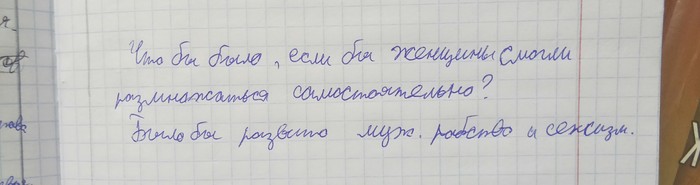 Что бы было, если бы женщины смогли
размножаться самостоятельно?
Было бы развито муж. рабство и сексизм.